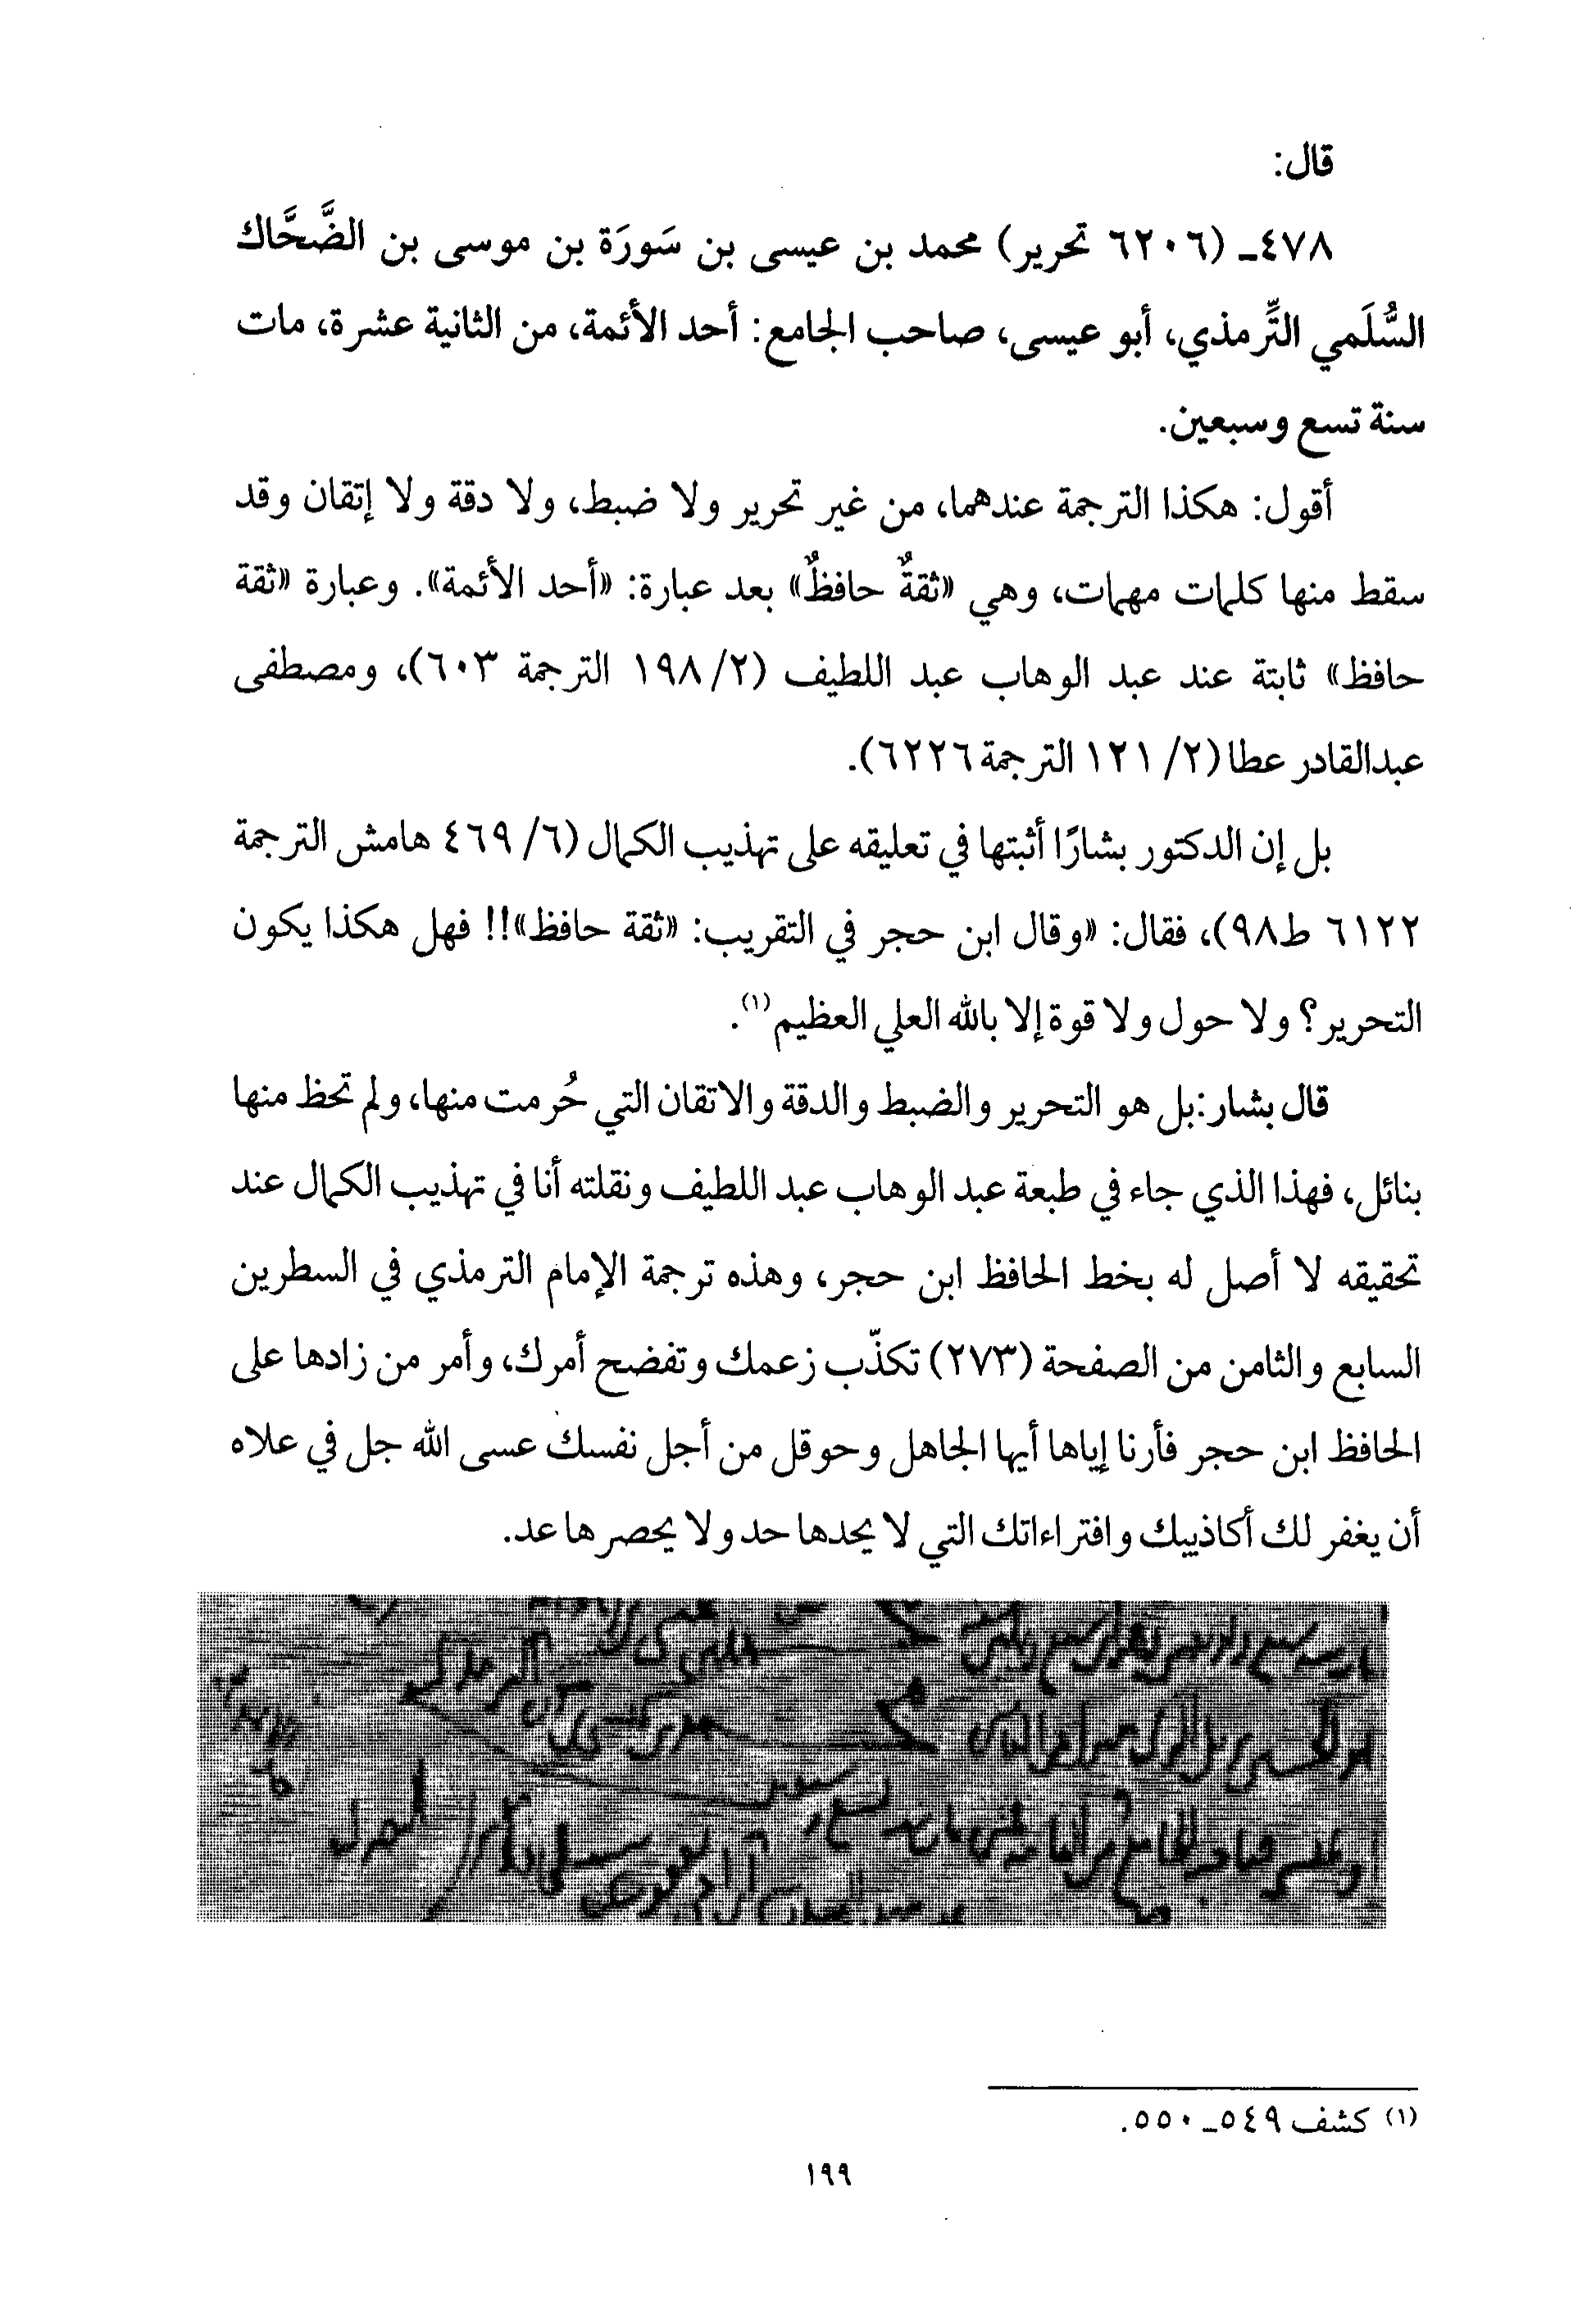 قال:
٤٧٨ـ (٦٢٠٦ تحرير) محمد بن عيسى بن سَورَة بن موسى بن الضَّحَّاك
السُّلَمي التِّرمذي، أبو عيسى، صاحب الجامع: أحد الأئمة، من الثانية عشرة، مات
سنة تسع وسبعين.
أقول: هكذا الترجمة عندهما، من غير تحرير ولا ضبط، ولا دقة ولا إتقان وقد
سقط منها كلمات مهمات، وهي «ثقةٌ حافظٌ» بعد عبارة: «أحد الأئمة». وعبارة «ثقة
حافظ» ثابتة عند عبد الوهاب عبد اللطيف (٢/ ١٩٨ الترجمة ٦٠٣)، ومصطفى
عبدالقادر عطا (٢/ ١٢١ الترجمة ٦٢٢٦).
بل إن الدكتور بشارًا أثبتها في تعليقه على تهذيب الكمال (٦/ ٤٦٩ هامش الترجمة
٦١٢٢ ط٩٨)، فقال: «وقال ابن حجر في التقريب: «ثقة حافظ»!! فهل هكذا يكون
التحرير؟ ولا حول ولا قوة إلا بالله العلي العظيم(١).
قال بشار:بل هو التحرير والضبط والدقة والاتقان التي حُرمت منها، ولم تحظ منها
بنائل، فهذا الذي جاء في طبعة عبد الوهاب عبد اللطيف ونقلته أنا في تهذيب الكمال عند
تحقيقه لا أصل له بخط الحافظ ابن حجر، وهذه ترجمة الإمام الترمذي في السطرين
السابع والثامن من الصفحة (٢٧٣) تكذّب زعمك وتفضح أمرك، وأمر من زادها على
الحافظ ابن حجر فأرنا إياها أيها الجاهل وحوقل من أجل نفسك عسى الله جل في علاه
أن يغفر لك أكاذيبك وافتراءاتك التي لا يحدها حد ولا يحصرها عد.
(١) كشف ٥٤٩ـ ٥٥٠.
١٩٩